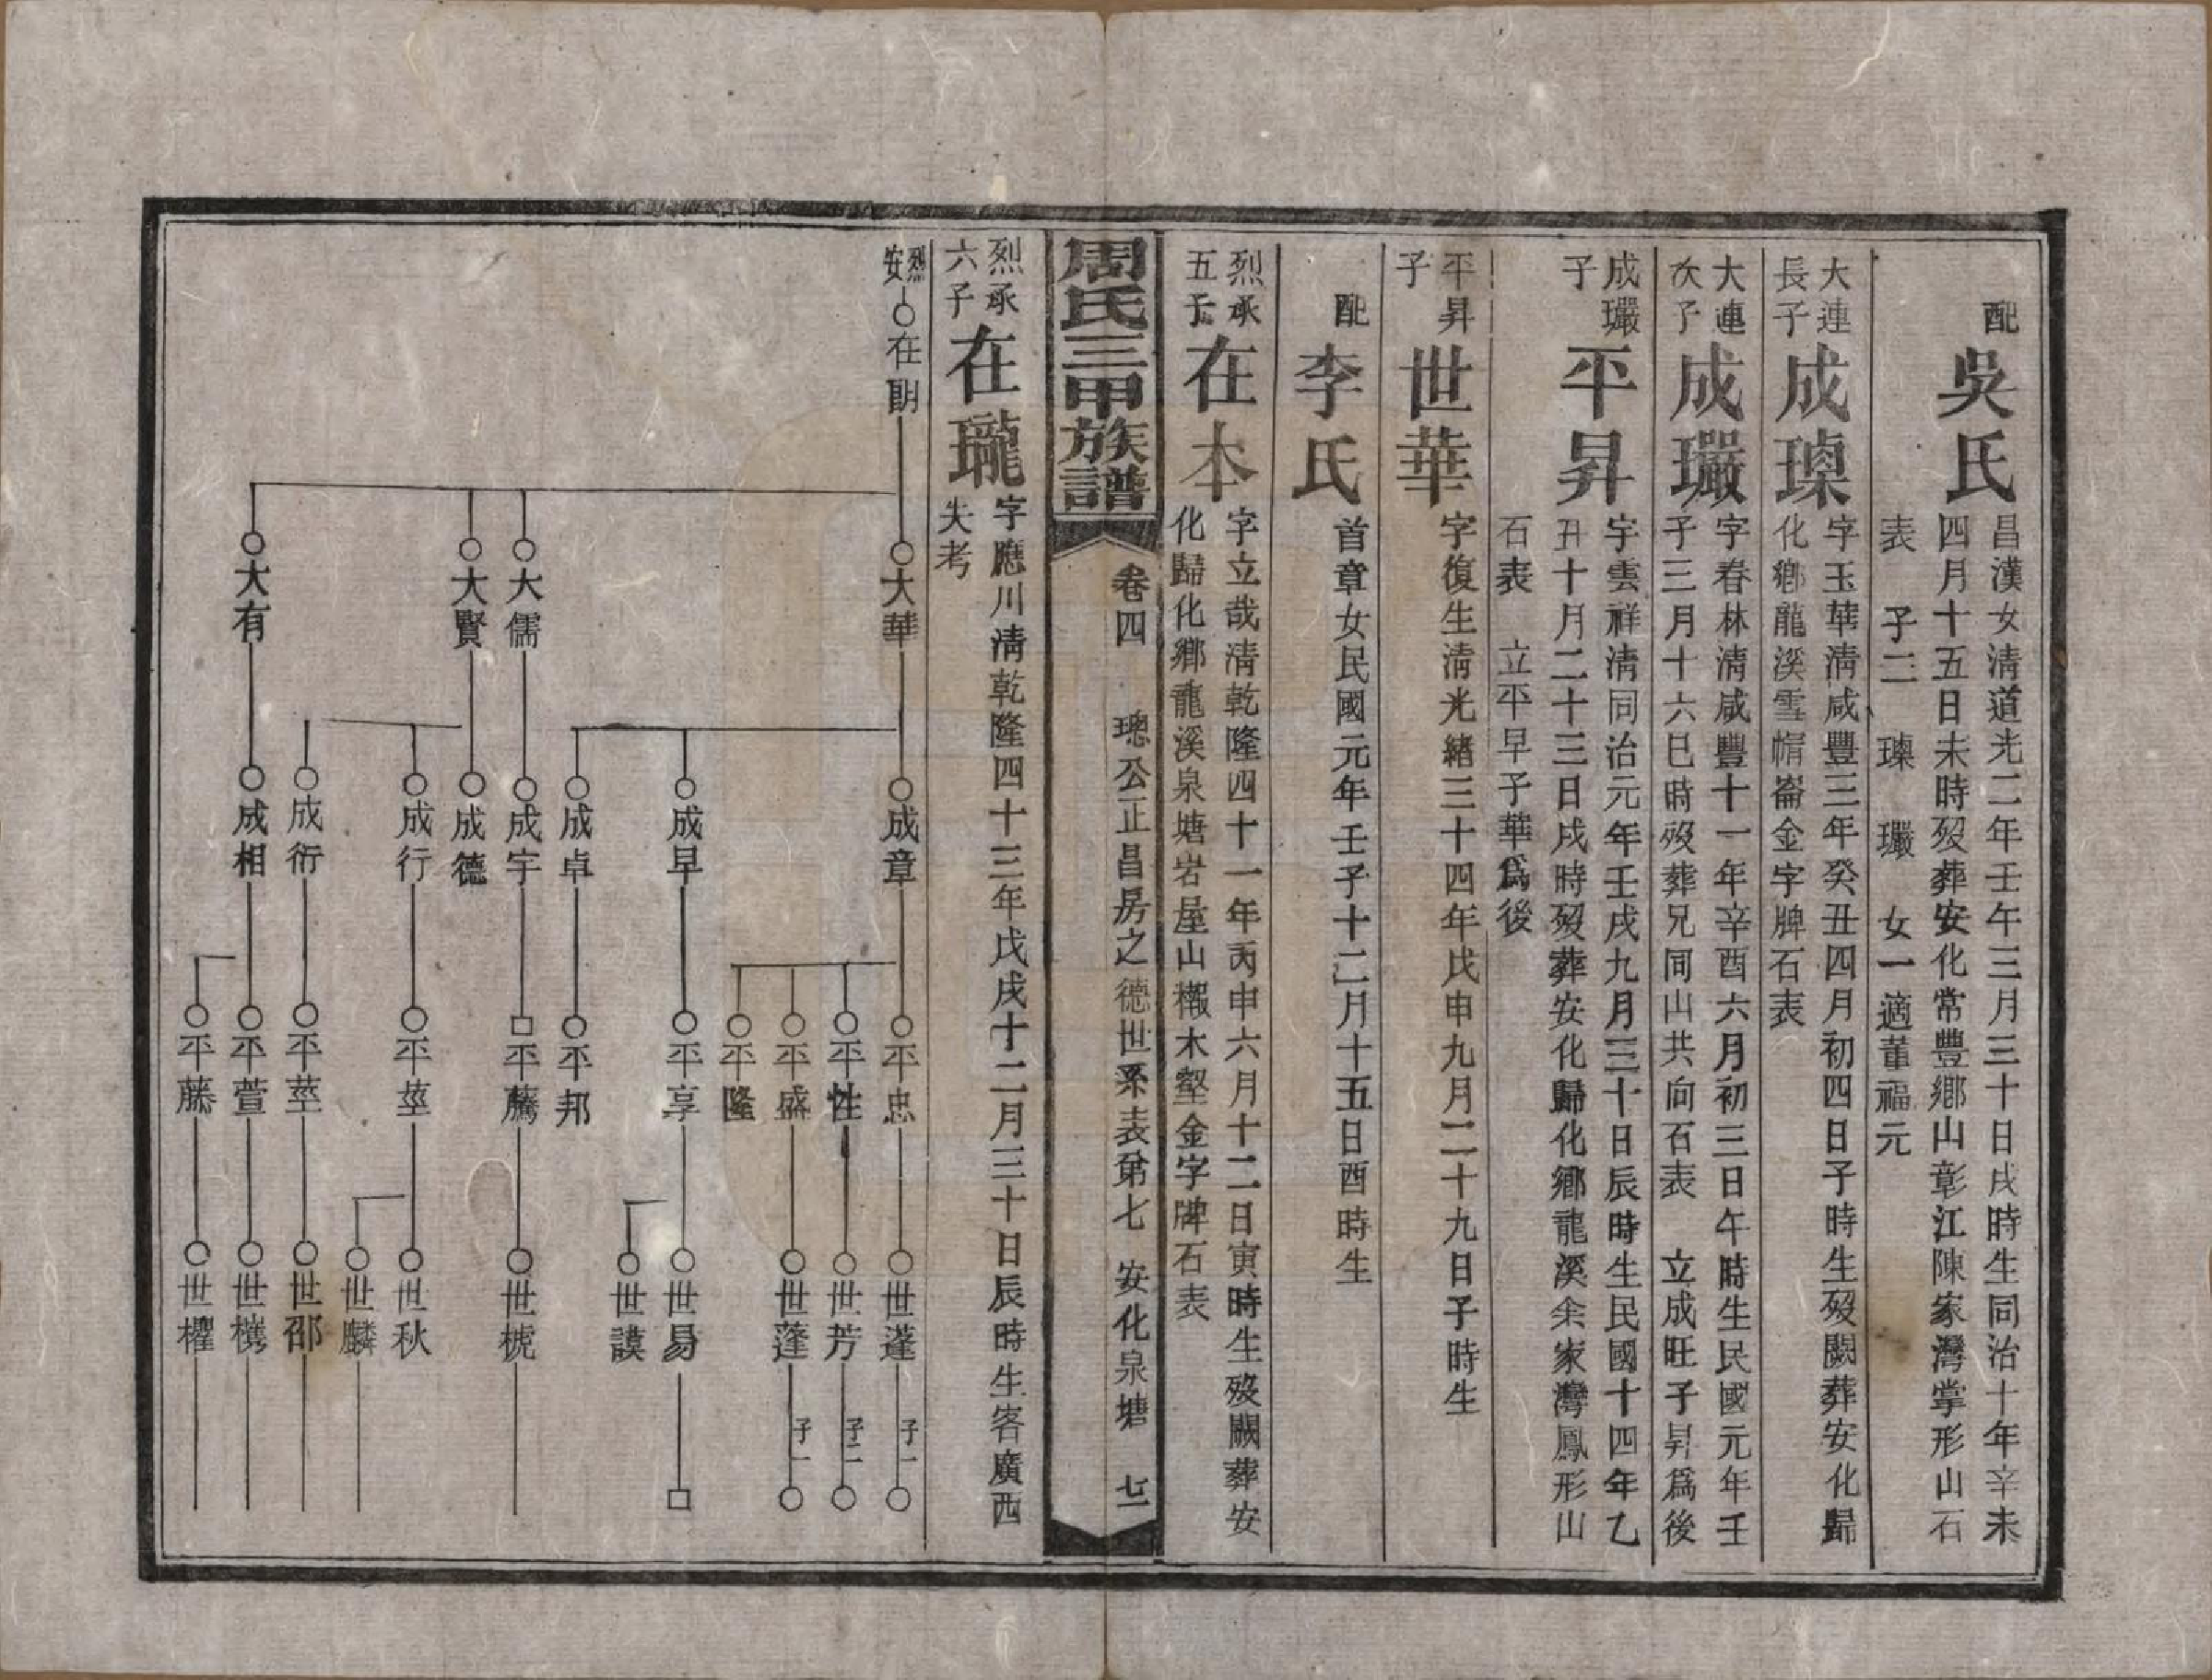 配
吳氏
昌漢女淸道光二年壬午三月三十日戌時生同治十年辛未
四月十五日未時歿葬安化常豐鄉山彰江陳家灣掌形山石
表　子二　瑔　𤫩　女一適董福元
大連
長子
成瑔
字玉華淸咸豐三年癸丑四月初四日子時生歿闕葬安化歸
化鄉龍溪雪帽崙金字牌石表
大連
次子
成𤫩
字春林淸咸豐十一年辛酉六月初三日午時生民國元年壬
子三月十六巳時歿葬兄同山共向石表　立成旺子昇爲後
成𤫩
子
平昇
字雲祥淸同治元年壬戌九月三十日辰時生民國十四年乙
丑十月二十三日戌時歿葬安化歸化鄉龍溪余家灣鳳形山
石表　立平早子華爲後
平昇
子
世華
字復生淸光緒三十四年戊申九月二十九日子時生
配
李氏
首章女民國元年壬子十二月十五日酉時生
烈承
五子
在本
字立哉淸乾隆四十一年丙申六月十二日寅時生歿闕葬安
化歸化鄉龍溪泉塘岩屋山檓木壑金字牌石表
周氏三甲族譜
卷四　璁公正昌房之德世系表第七　安化泉塘　七二
烈承
六子
在瓏
字應川淸乾隆四十三年戊戌十二月三十日辰時生客廣西
失考
烈安
在朙
大華
大儒
大賢
大有
成章
成早
成卓
成宇
成德
成行
成衍
成相
平忠
平性
平盛
平隆
平享
平邦
平騰
平莖
平莖
平萱
平藤
世蓬
世芳
世蓬
世易
世謨
世槐
世秋
世麟
世邵
世檇
世欋
子一
子二
子一